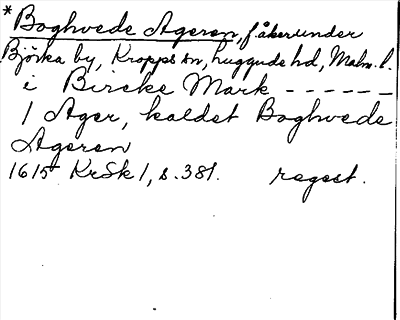 * Boghvede Ageren, f. åker under
Björka by, Kropps sn, Luggude hd, Malm. l.
i Bircke Mark - - - - - -
1 Ager, kaldet Boghvede
Ageren
1615 KrSk 1, s. 381. regest.